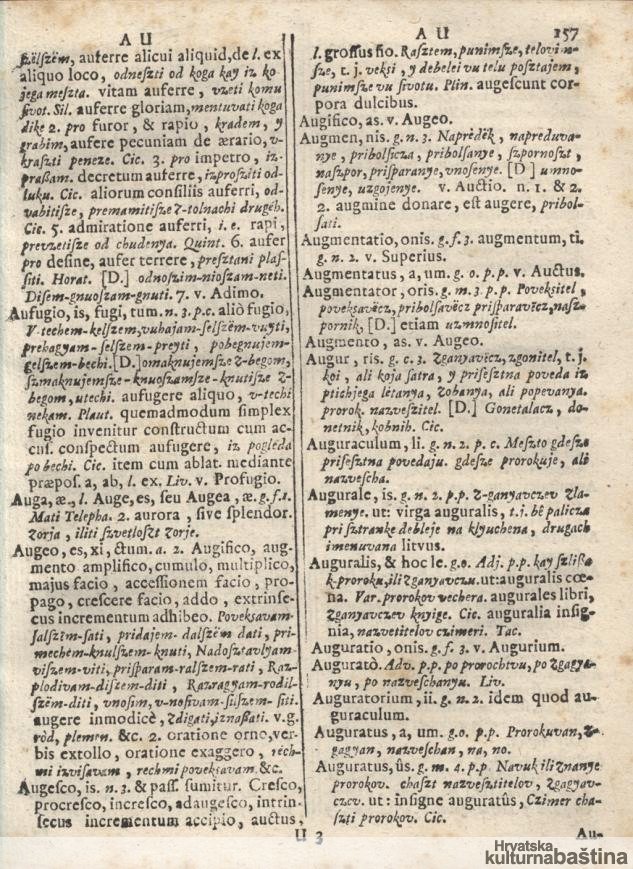 A U
A U 157
ſzëlſzëm, auferre alicui aliquid, de l. ex
aliquo loco, odneſzti od koga kay iz ko
jega meſzta. vitam auferre, vzeti komu
ſivot. Sil. auferre gloriam, mentuvati koga
dike 2. pro furor, & rapio, kradem, y
grabim, aufere pecuniam de ærario, v-
kraſzti peneze. Cic. 3. pro impetro, iz-
praſſam. decretum auferre, izproſziti od-
luku. Cic. aliorum conſiliis auferri, od-
vabitiſze, premamitiſze z-tolnachi drugeh.
Cic. 5. admiratione auferri, i. e. rapi,
prevzetiſze od chudenya. Quint. 6. aufer
pro deſine, aufer terrere, preſztani plaſ-
ſiti. Horat. [D.] odnoſzim-nioſzam-neti.
Diſem-gnuoſzam-gnuti. 7. v. Adimo.
Aufugio, is, fugi, tum. n. 3. p. c. aliò fugio,
V-techem-kelſzem, vuhajam-ſelſzëm-vuyti,
prehagyam-ſelſzem-preyti, pobegnujem-
gelſzem-bechi. [D.] omaknujemſze z-begom,
ſzmaknujemſze-knuoſzamſze-knutiſze z-
begom, utechi. aufugere aliquo, v-techi
nekam. Plaut. quemadmodum ſimplex
fugio invenitur conſtructum cum ac-
cuſ. conſpectum aufugere, iz pogleda
pobechi. Cic. item cum ablat. mediante
præpoſ. a, ab, l. ex. Liv. v. Profugio.
Auga, æ, l. Auge, es, ſeu Augea, æ. g. f. 1.
Mati Telepha. 2. aurora, ſive ſplendor.
zorja, iliti ſzvetloſzt zorje.
Augeo, es, xi, ctum. a. 2. Augifico, aug-
mento amplifico, cumulo, multiplico,
majus facio, acceſſionem facio, pro-
pago, creſcere facio, addo, extrinſe-
cus incrementum adhibeo. Povekſavam-
ſalſzëm-ſati, pridajem-dalſzëm dati, pri-
mechem-knulſzem-knuti, Nadoſztavlyam-
viſzem-viti, priſparam-ralſzem-rati, Raz-
plodivam-diſzem-diti, Razragyam-rodil-
ſzëm-diti, vnoſim, v-noſivam-ſilſzem-ſiti.
augere inmodicè, zdigati, iznaſſati. v. g.
ròd, plemen. &c. 2. oratione orno, ver-
bis extollo, oratione exaggero, rech-
mi izviſavam, rechmi povekſavam. &c.
Augeſco, is. n. 3. & paſſ. ſumitur. Creſco,
procreſco, increſco, adaugeſco, intrin-
ſecus incrementum accipio, auctus,
l. groſſus fio. Raſztem, punimſze, telovim-
ſze, t. j. vekſi, y debelei vu telu poſztajem,
punimſze vu ſivotu. Plin. augeſcunt cor-
pora dulcibus.
Augifico, as. v. Augeo.
Augmen, nis. g. n. 3. Naprèdëk, napreduva-
nye, pribolſicza, pribolſanye, ſzpornoſzt,
naſzpor, priſparanye, vnoſenye. [D] umno-
ſenye, uzgojenye. v. Auctio. n. 1. & 2.
2. augmine donare, eſt augere, pribol-
ſati.
Augmentatio, onis. g. f. 3. augmentum, ti.
g. n. 2. v. Superius.
Augmentatus, a, um. g. o. p. p. v. Auctus.
Augmentator, oris. g. m. 3. p. p. Povekſitel,
povekſavëcz, pribolſavëcz priſparavëcz, naſz-
pornik, [D.] etiam uzmnoſitel.
Augmento, as. v. Augeo.
Augur, ris. g. c. 3. Zganyavëcz, zgonitel, t. j.
koi, ali koja ſatra, y priſeſztna poveda iz
ptichjega lètanya, zobanya, ali popevanya.
prorok. nazveſzitel. [D.] Gonetalacz, do-
netnik, kobnih. Cic.
Auguraculum, li. g. n. 2. p. c. Meſzto gdeſze
priſeſztna povedaju. gdeſze prorokuje, ali
nazveſcha.
Augurale, is. g. n. 2. p. p. Z-ganyavczev zla-
menye. ut: virga auguralis, t. j. bê palicza
pri ſztranke debleje na klyuchena, drugach
imenuvana litvus.
Auguralis, & hoc le. g. o. Adj. p. p. kay ſzliſſa
k-proroku, ili zganyavczu. ut: auguralis cœ-
na. Var. prorokov vechera. augurales libri,
Zganyavczev knyige. Cic. auguralia inſig-
nia, nazvetitelov czimeri. Tac.
Auguratio, onis. g. f. 3. v. Augurium.
Auguratò. Adv. p. p. po prorochtvu, po zgagya-
nyu, po nazveſchanyu. Liv.
Auguratorium, ii. g. n. 2. idem quod au-
guraculum.
Auguratus, a, um. g. o. p. p. Prorokuvan, z-
gagyan, nazveſchan, na, no.
Auguratus, ûs. g. m. 4. p. p. Navuk ili znanye
prorokov. chaſzt nazveſztitelov, zgagyav-
czev. ut: inſigne auguratûs, Czimer cha-
ſzti prorokov. Cic.
U 3
Au-
Hrvatska
kulturnabaština